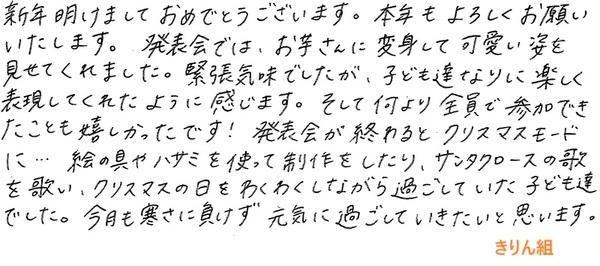 新年明けましておめでとうございます。本年もよろしくお願い
いたします。発表会では、お芋さんに変身して可愛い姿を
見せてくれました。緊張気味でしたが、子ども達なりに楽しく
表現してくれたように感じます。そして何より全員で参加でき
たことも嬉しかったです！発表会が終わるとクリスマスモード
に… 絵の具やハサミを使って制作をしたり、サンタクロースの歌
を歌い、クリスマスの日をわくわくしながら過ごしていた子ども達
でした。今月も寒さに負けず元気に過ごしていきたいと思います。
きりん組